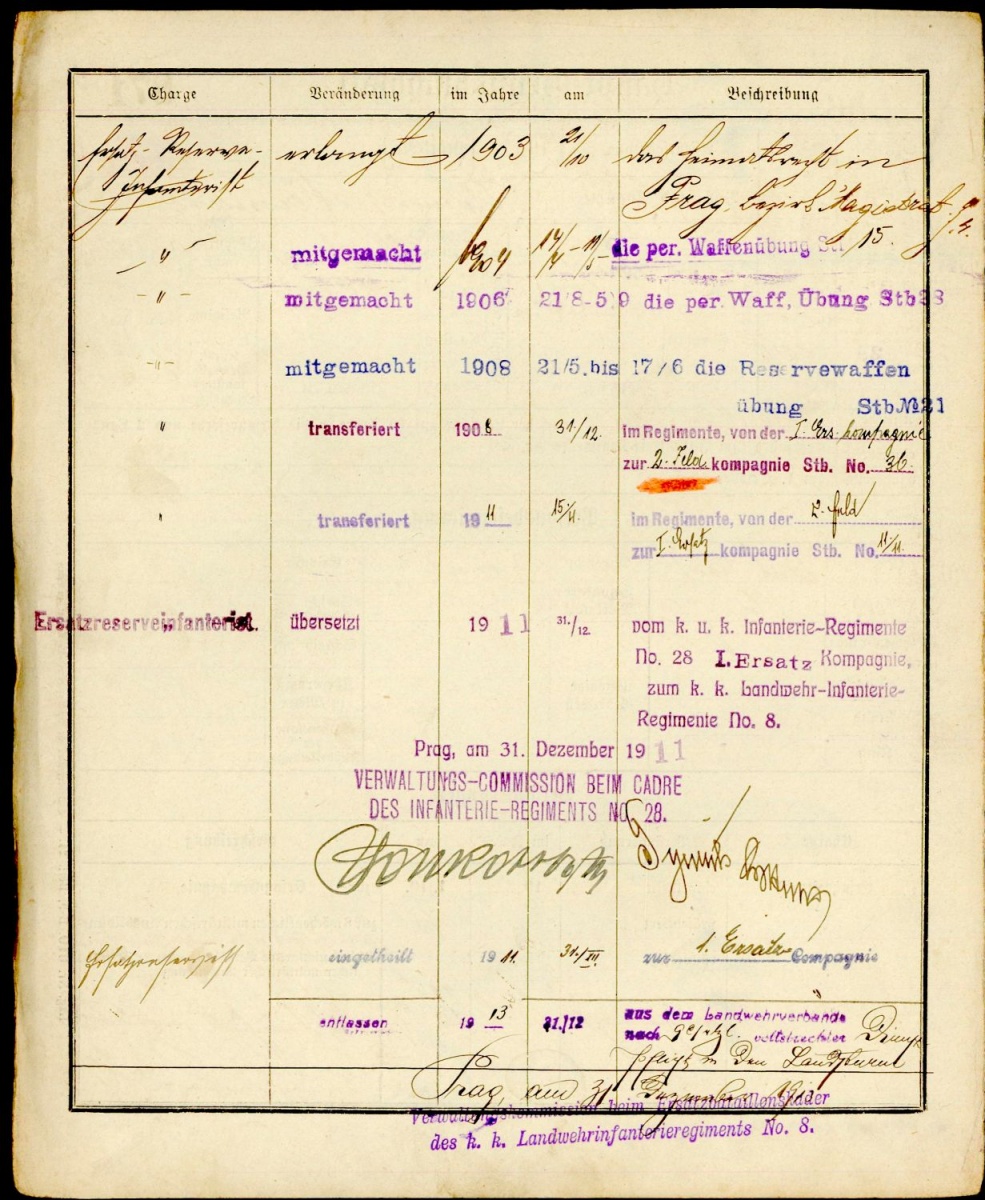 Charge Veränderung im Jahre am Beschreibung
Ersatz-Reserve- erlangt 1903 21/10 das Heimatsrecht in
Infanterist Prag, Bezirk Magistrat
" mitgemacht 1904 die per. Waffenübung 15.
-"- mitgemacht 1906 21/8-5/9 die per. Waff, Übung Stb 28
-"- mitgemacht 1908 21/5. bis 17/6 die Reservewaffen
übung Stb № 21
" transferiert 1908 31/12. im Regimente, von der I. Ers. kompagnie
zur 2. Feld kompagnie Stb. No. 36.
" transferiert 1911 15/11. im Regimente, von der 2. Feld
zur I. Ersatz kompagnie Stb. No. 11/11.
Ersatzreserveinfanterist. übersetzt 1911 31./12. vom k. u. k. Infanterie-Regimente
No. 28 I. Ersatz Kompagnie,
zum k. k. Landwehr-Infanterie-
Regimente No. 8.
Prag, am 31. Dezember 1911
VERWALTUNGS-COMMISSION BEIM CADRE
DES INFANTERIE-REGIMENTS NO. 28.
Ersatzreservist eingetheilt 1911. 31./XII. zur 1. Ersatz Compagnie
entlassen 1913 31./12 aus dem Landwehrverbande
nach gesetzl. vollstreckter Dienst
pflicht in den Landsturm
Prag, am 31. Dezember
Verwaltungskommission beim Ersatzbataillonskader
des k. k. Landwehrinfanterieregiments No. 8.